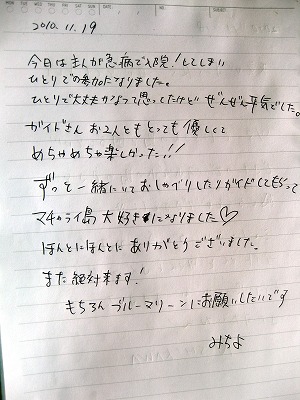 MO TU WE TH FR SA SU
2010.11.19
今日は主人が急病で入院!してしまい
ひとりでの参加になりました。
ひとりで大丈夫かなって思ってたけど ぜんぜん平気でした。
ガイドさん お2人ともとっても優しくて
めちゃめちゃ楽しかった!!
ずっと一緒にいておしゃべりしたりガイドしてもらって
マチャライ島 大好きになりました♡
ほんとにほんとに ありがとうございました。
また絶対来ます!
もちろん ブルーマリーンにお願いしたいです
みちよ